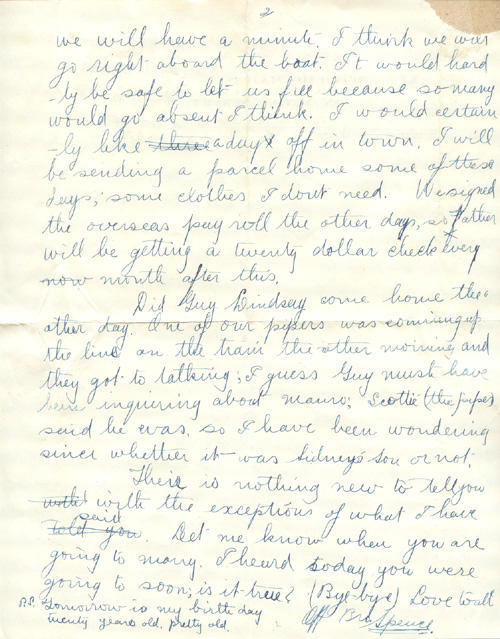 2
we will have a minute. I think we will
go right aboard the boat. It would hard
-ly be safe to let us free because so many
would go absent I think. I would certain
-ly like three a day off in town. I will
be sending a parcel home some of these
days; some clothes I dont need. We signed
the overseas pay roll the other days, so Father
will be getting a twenty dollar check every
now month after this.
Did Guy Lindsay come home the
other day. One of our pipers was coming up
the line on the train the other morning and
they got to talking; I guess Guy must have
been inquiring about manro; Scottie (the piper)
said he was, so I have been wondering
since whether it was Sidney's son or not.
There is nothing new to tell you
with the exceptions of what I have
said
told you. Let me know when you are
going to marry. I heard today you were
going to soon; is it true? (Bye-bye) Love to all
P.S. Tomorrow is my birth day
Off Bro Spence
twenty years old. pretty old.